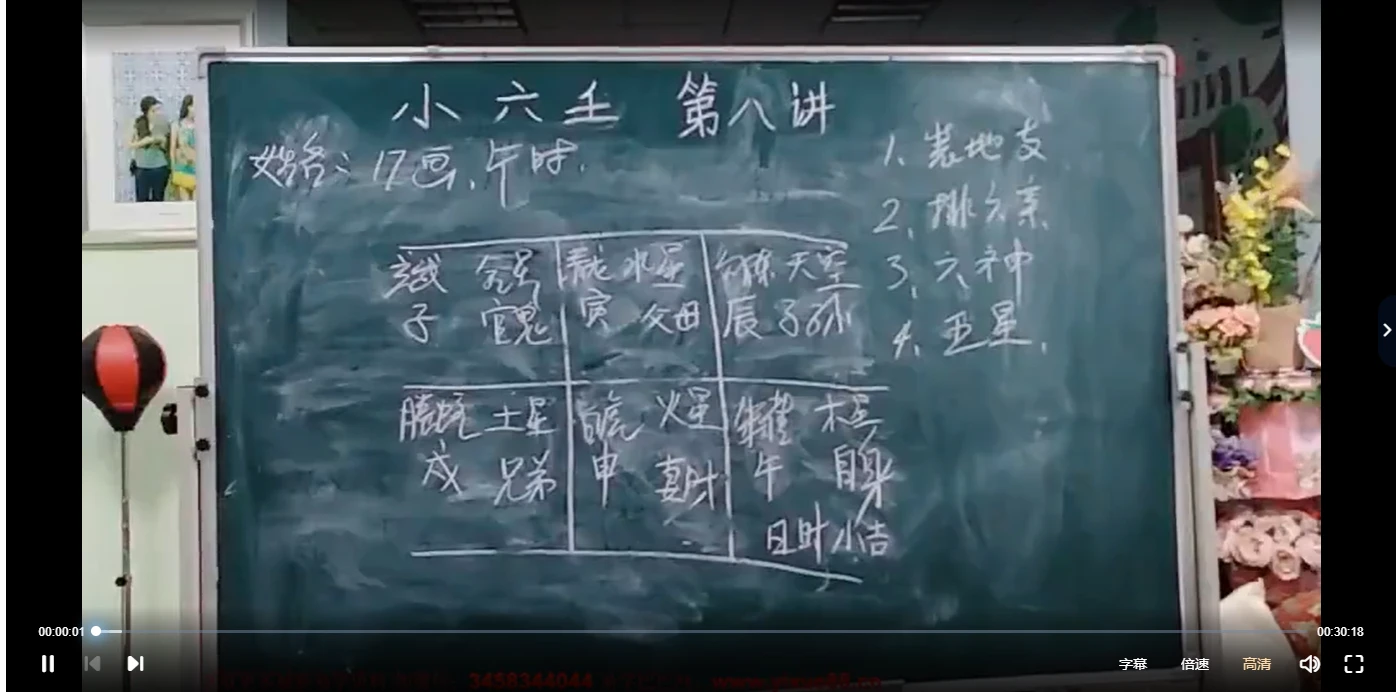 小六壬 第八讲
姓名：17画、午时.
1、装地支
2、排六亲
3、六神
4、五星、
玄武 金星
子 官鬼
青龙 水星
寅 父母
勾陈 天空
辰 子孙
腾蛇 土星
戌 兄弟
白虎 火星
申 妻财
朱雀 木星
午 自身
日时小吉
00:00:01
00:30:18
字幕 倍速 高清
3458344044